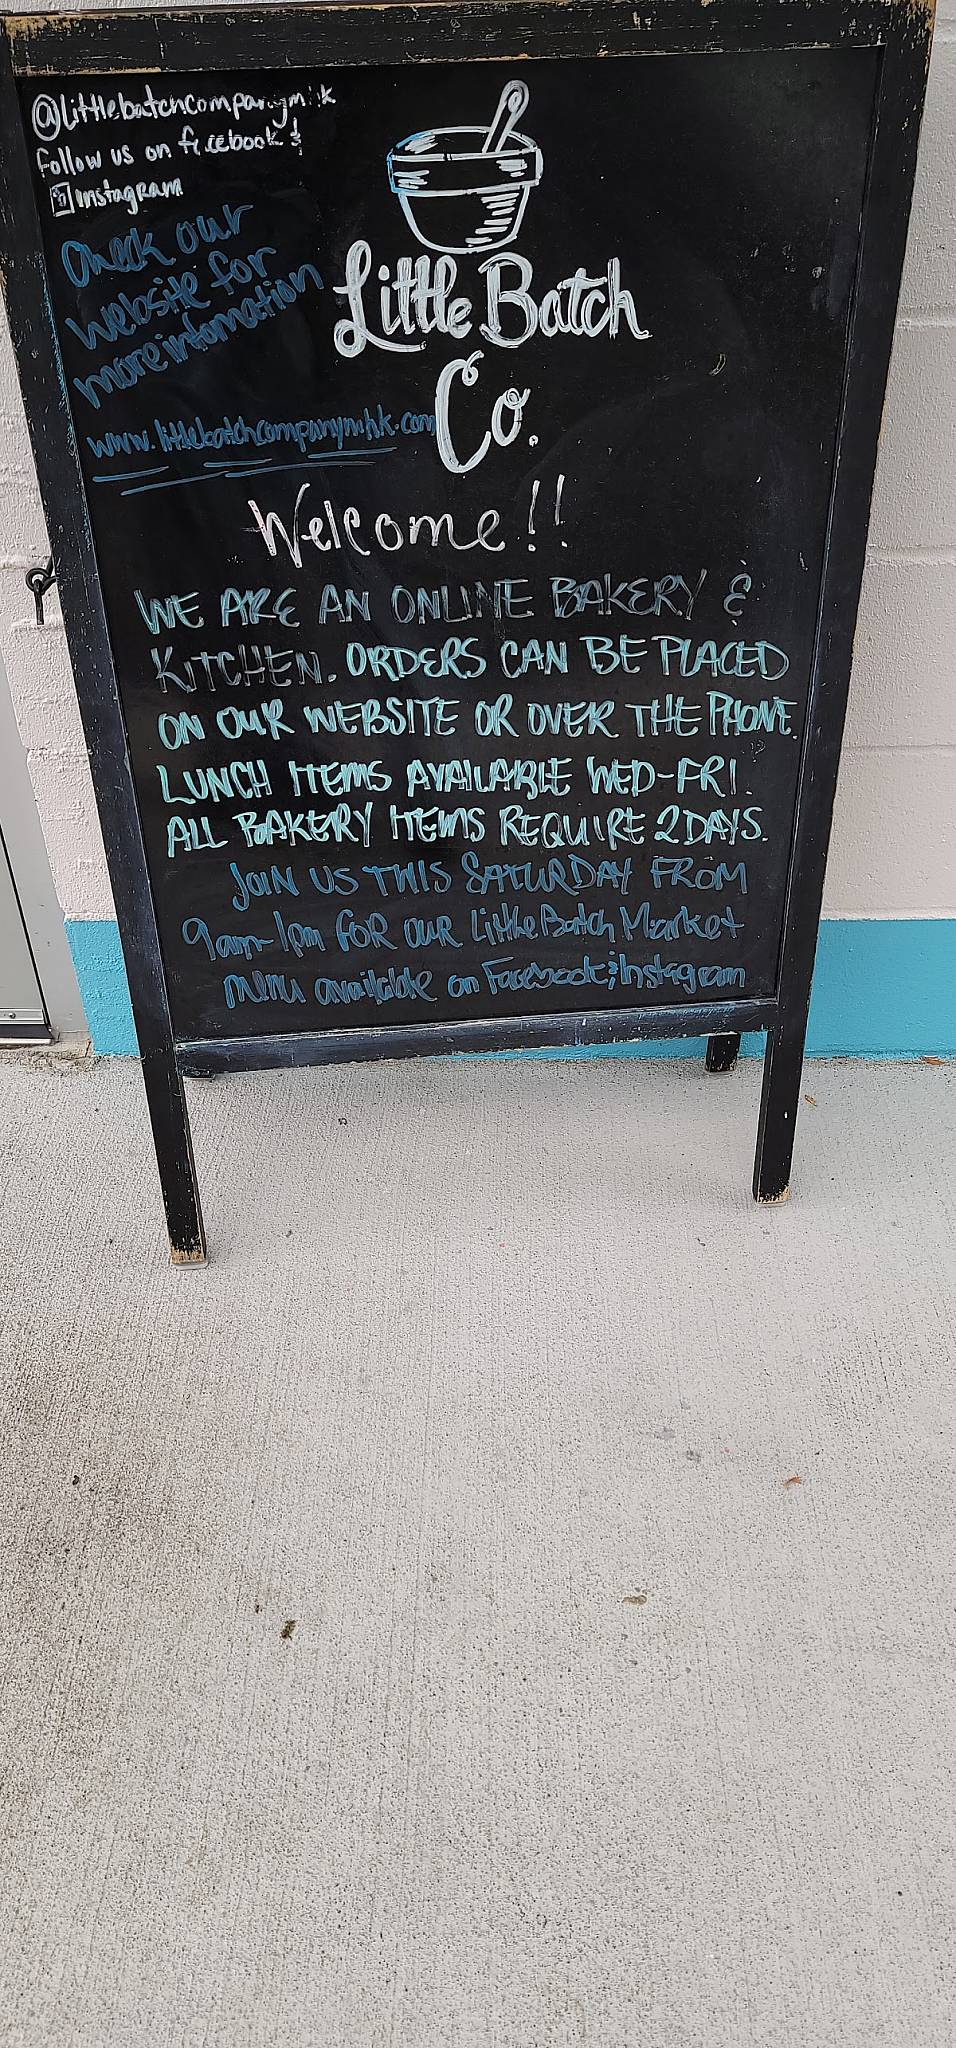 @littlebatchcompanymhk
Follow us on facebook &
instagram
Check our
website for
more infomation
www.littlebatchcompanymhk.com
Little Batch
Co.
Welcome!!
WE ARE AN ONLINE BAKERY &
KITCHEN. ORDERS CAN BE PLACED
ON OUR WEBSITE OR OVER THE PHONE.
LUNCH ITEMS AVAILABLE WED-FRI.
ALL BAKERY ITEMS REQUIRE 2 DAYS.
JOIN US THIS SATURDAY FROM
9am-1pm FOR OUR Little Batch Market
menu available on Facebook & Instagram